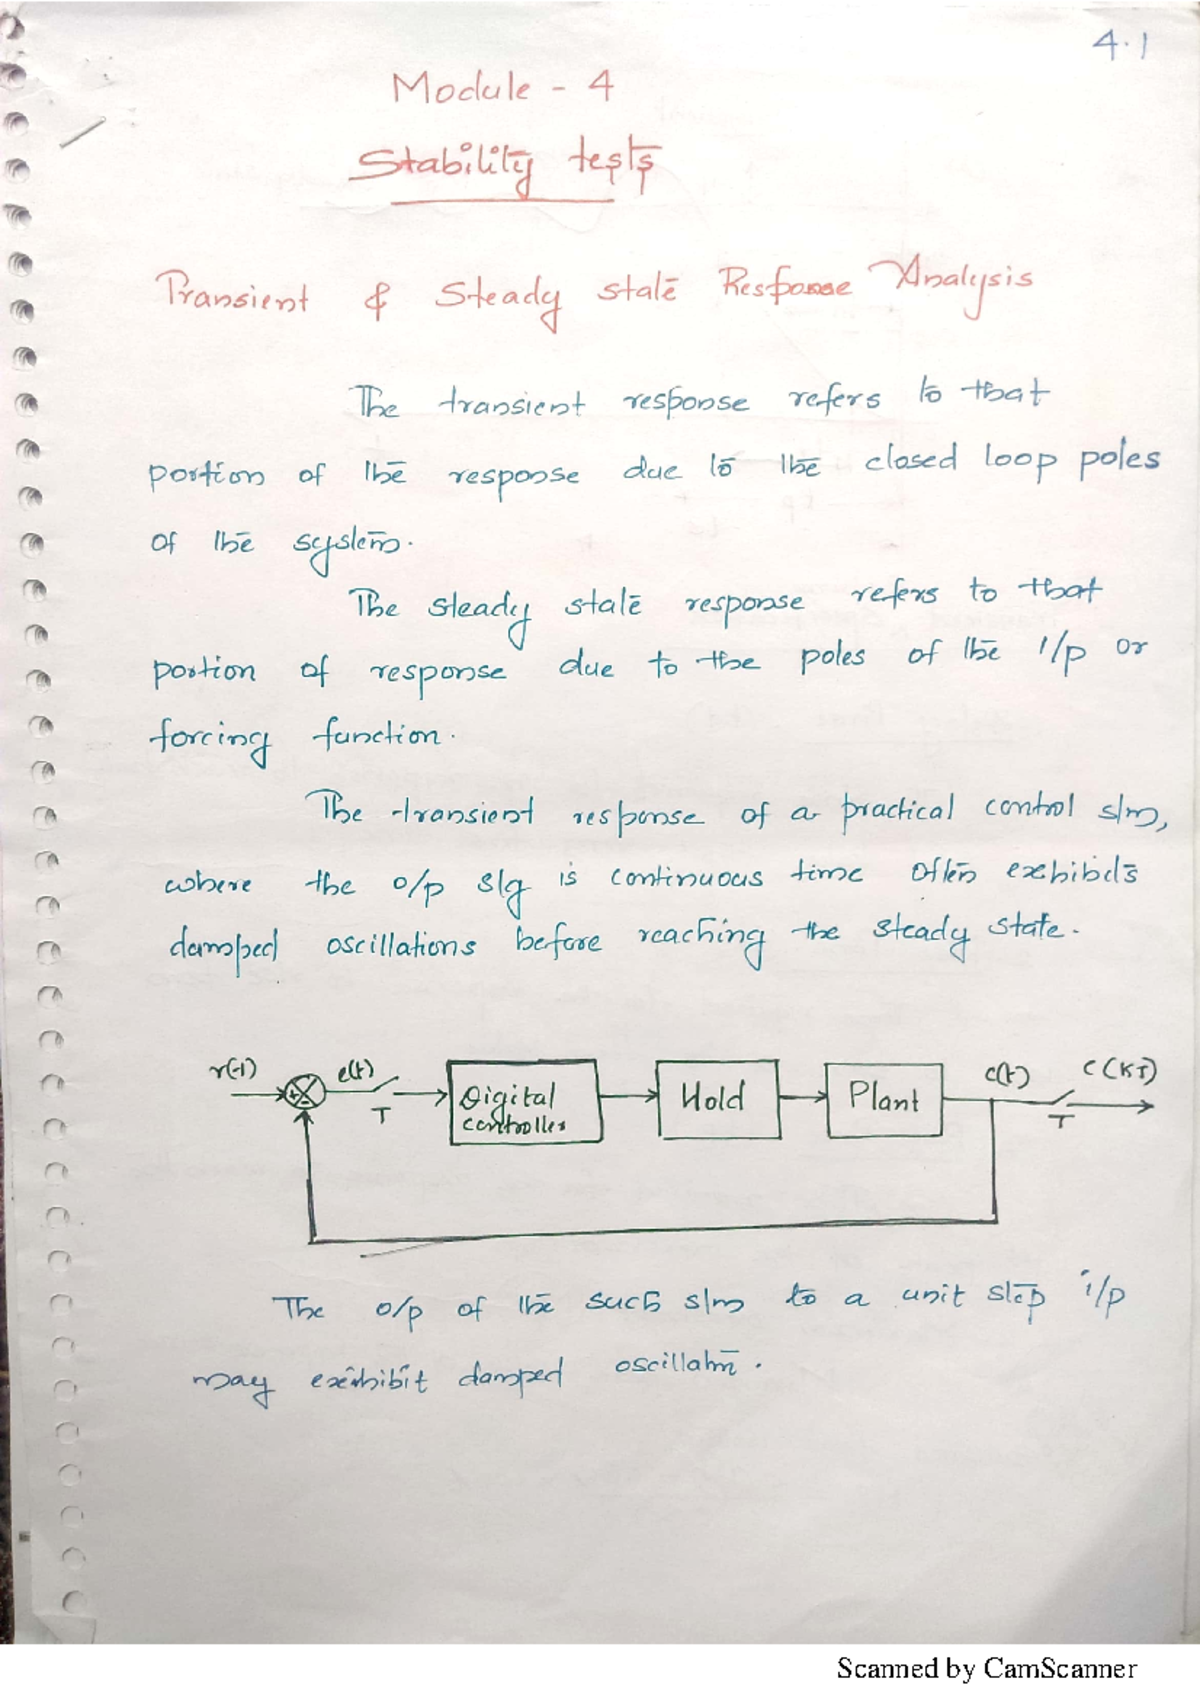 4.1
Module - 4
Stability tests
Transient & Steady state Response Analysis
The transient response refers to that
portion of the response due to the closed loop poles
of the system.
The steady state response refers to that
portion of response due to the poles of the i/p or
forcing function.
The transient response of a practical control s/m,
where the o/p s/g is continuous time often exhibits
damped oscillations before reaching the steady state.
r(t) e(t) T Digital controller Hold Plant c(t) T C(KT)
+ -
The o/p of the such s/m to a unit step i/p
may exihibit damped oscillatn.
Scanned by CamScanner